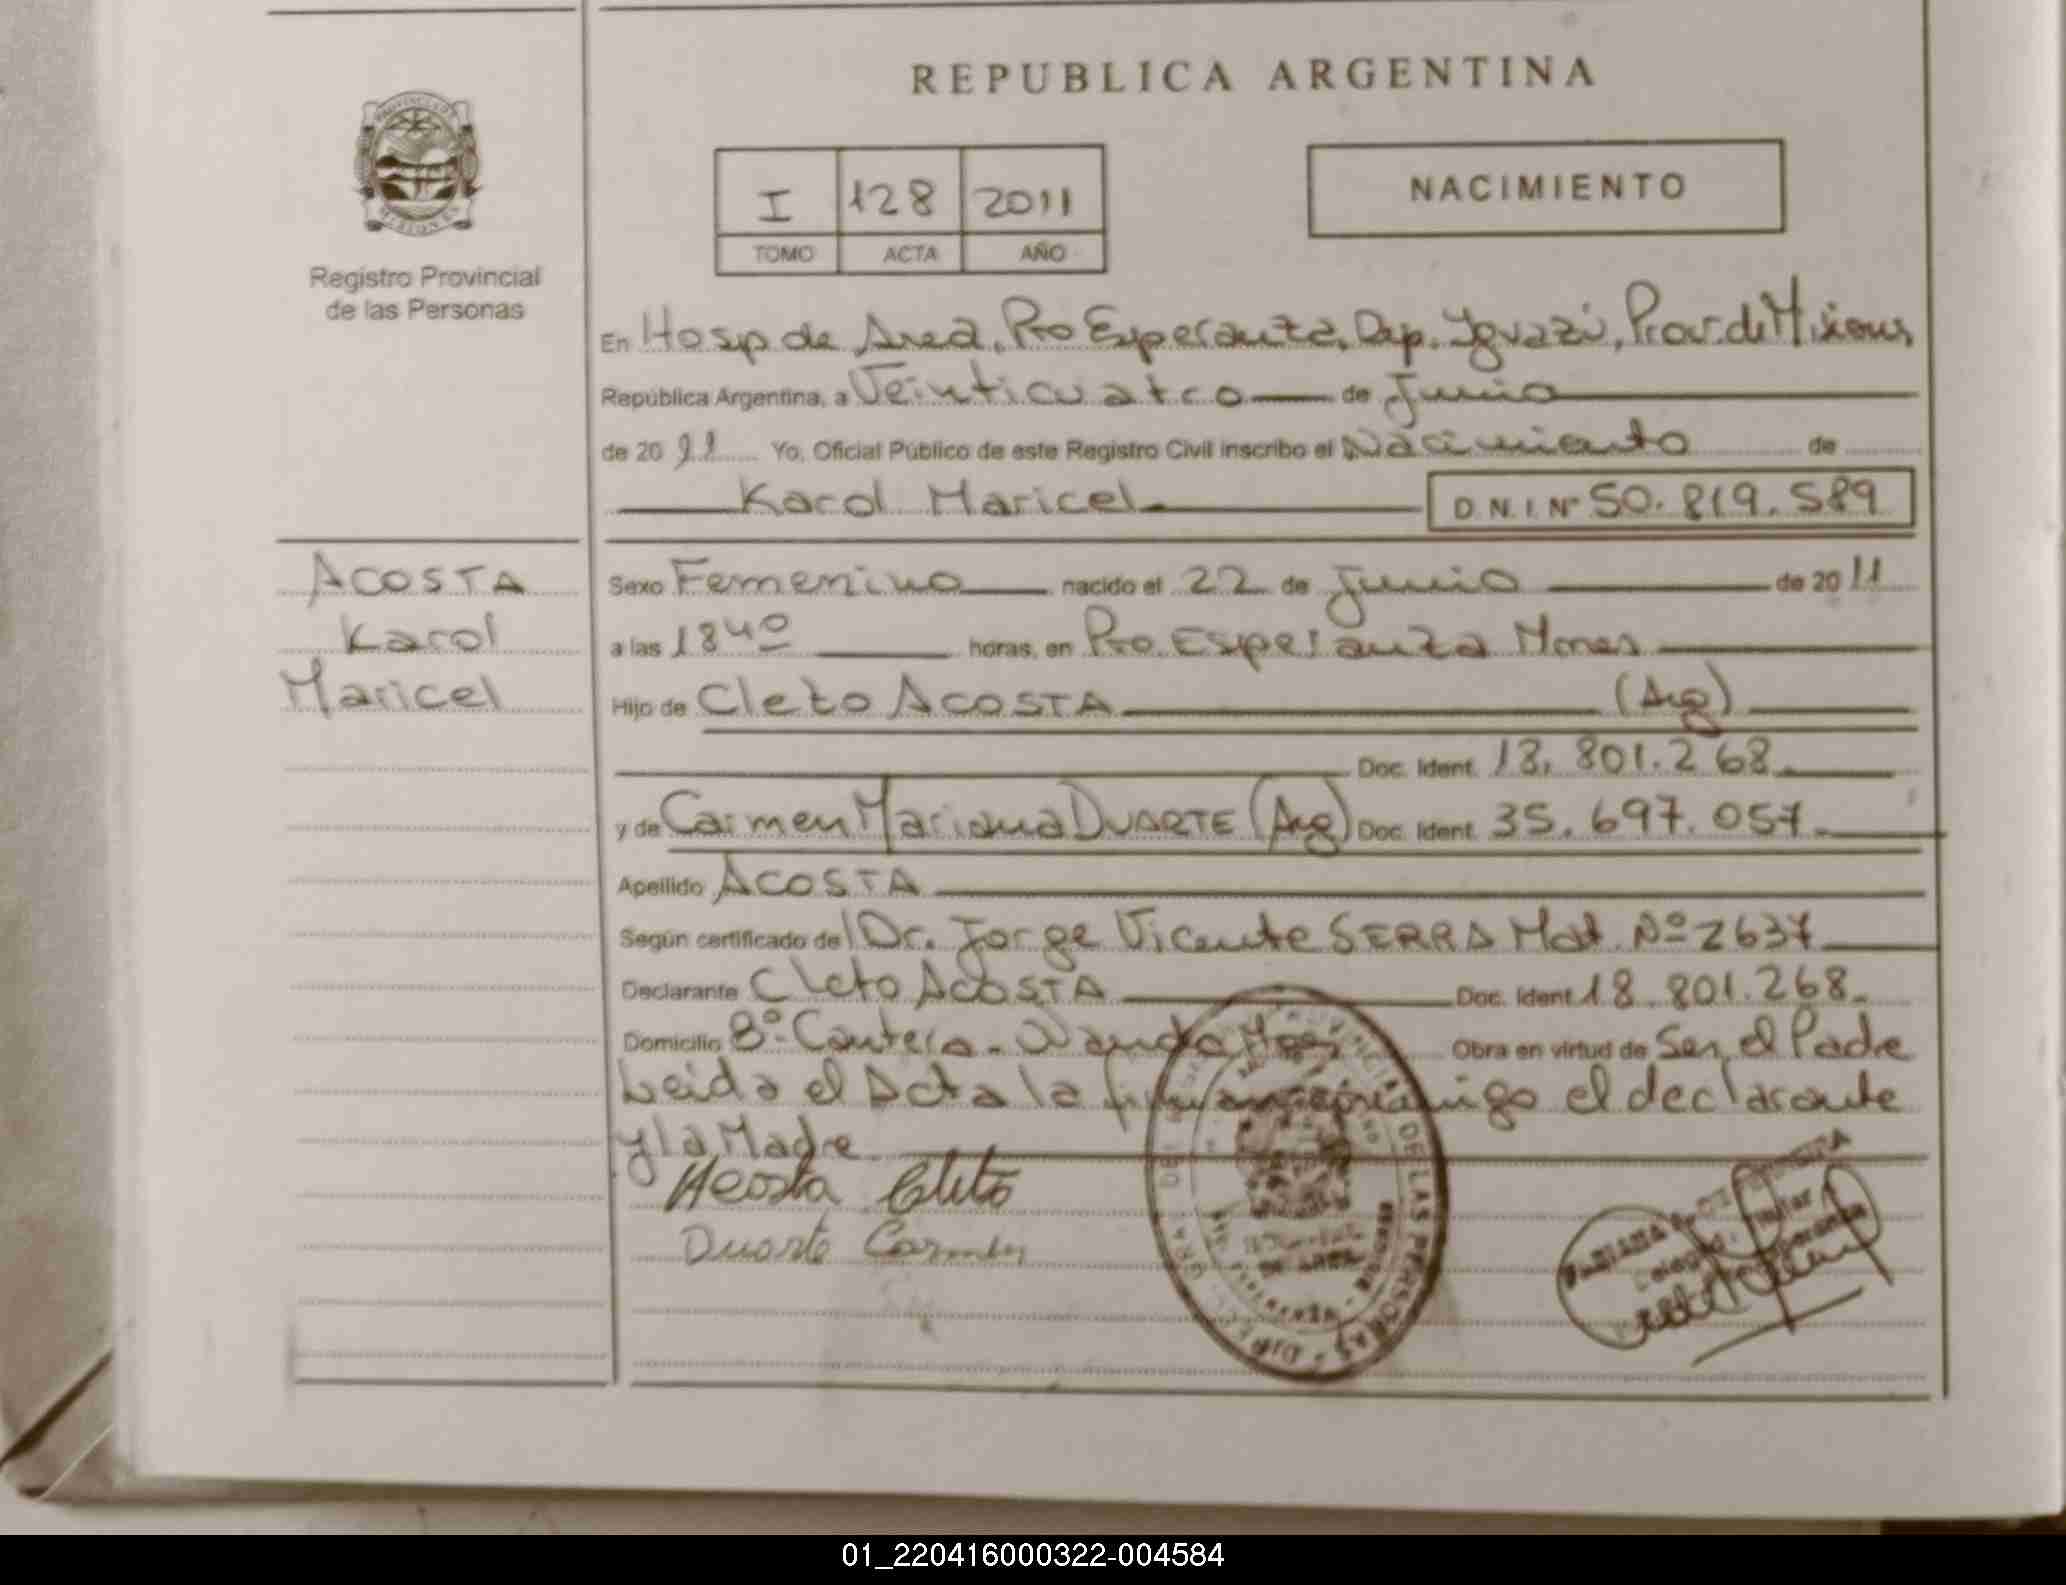 REPUBLICA ARGENTINA
NACIMIENTO
I 128 2011
TOMO ACTA AÑO
Registro Provincial
de las Personas
En Hosp de Area, Pto Esperanza, Dep. Yguazú, Prov. de Misiones,
República Argentina, a Veinticuatro de Junio
de 20 11 Yo, Oficial Público de este Registro Civil inscribo el Nacimiento de
Karol Maricel D.N.I. Nº 50.819.589
ACOSTA
Karol
Maricel
Sexo Femenino nacido el 22 de Junio de 20 11
a las 18 40 horas, en Pto. Esperanza Mnes
Hijo de Cleto ACOSTA (Arg)
Doc. Ident. 18.801.268
y de Carmen Mariana DUARTE (Arg) Doc. Ident. 35.697.057
Apellido ACOSTA
Según certificado del Dr. Jorge Vicente SERRA Mat. Nº 2637
Declarante Cleto ACOSTA Doc. Ident 18.801.268
Domicilio Bº Cantera - Wanda Obra en virtud de Ser el Padre
Leida el Acta la el declarante
y la Madre
Acosta Cleto
Duarte Carmen
DE LAS PERSONAS
01_220416000322-004584